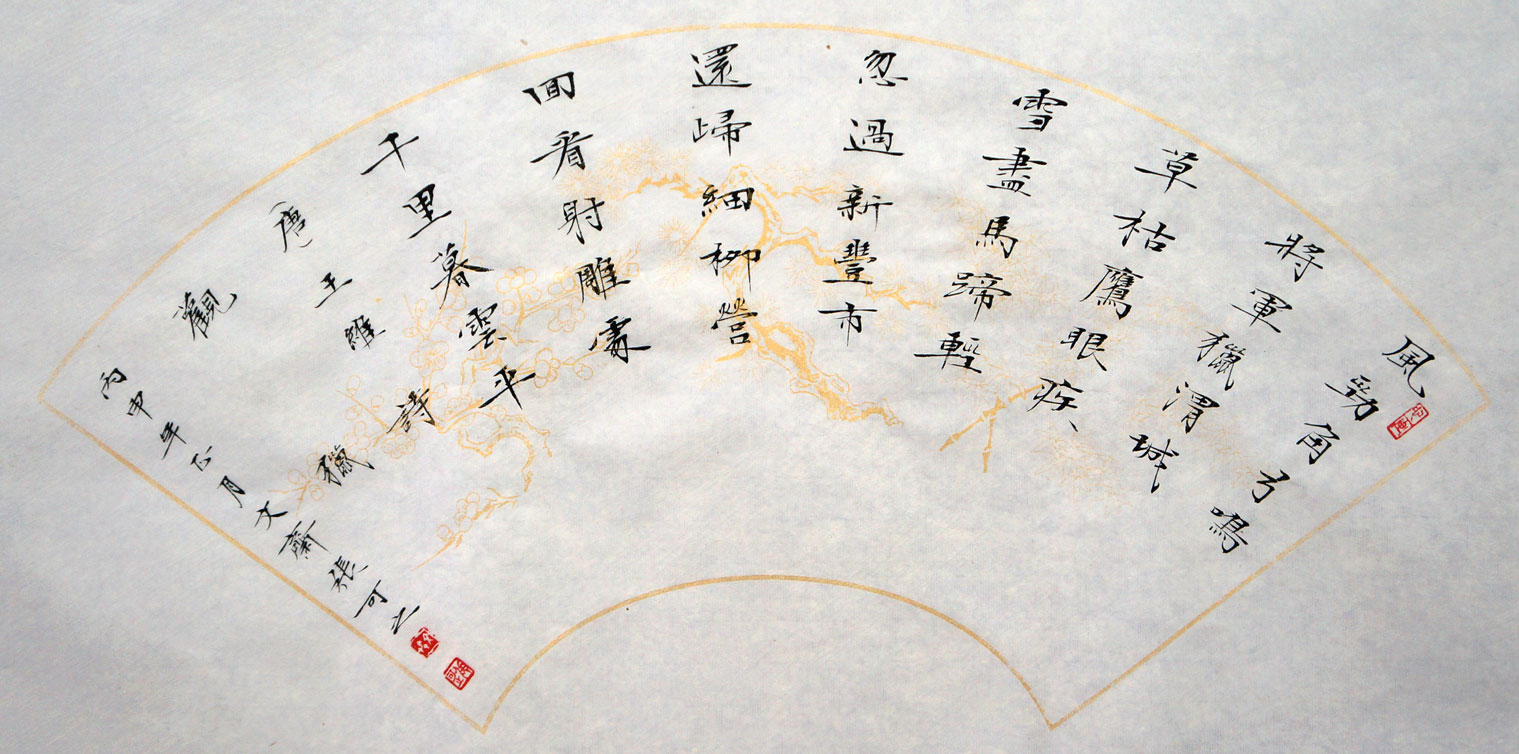 風勁角弓鳴
將軍獵渭城
草枯鷹眼疾
雪盡馬蹄輕
忽過新豐市
還歸細柳營
回看射雕處
千里暮雲平
（唐）王維詩
觀獵
丙申年正月文齋張可之